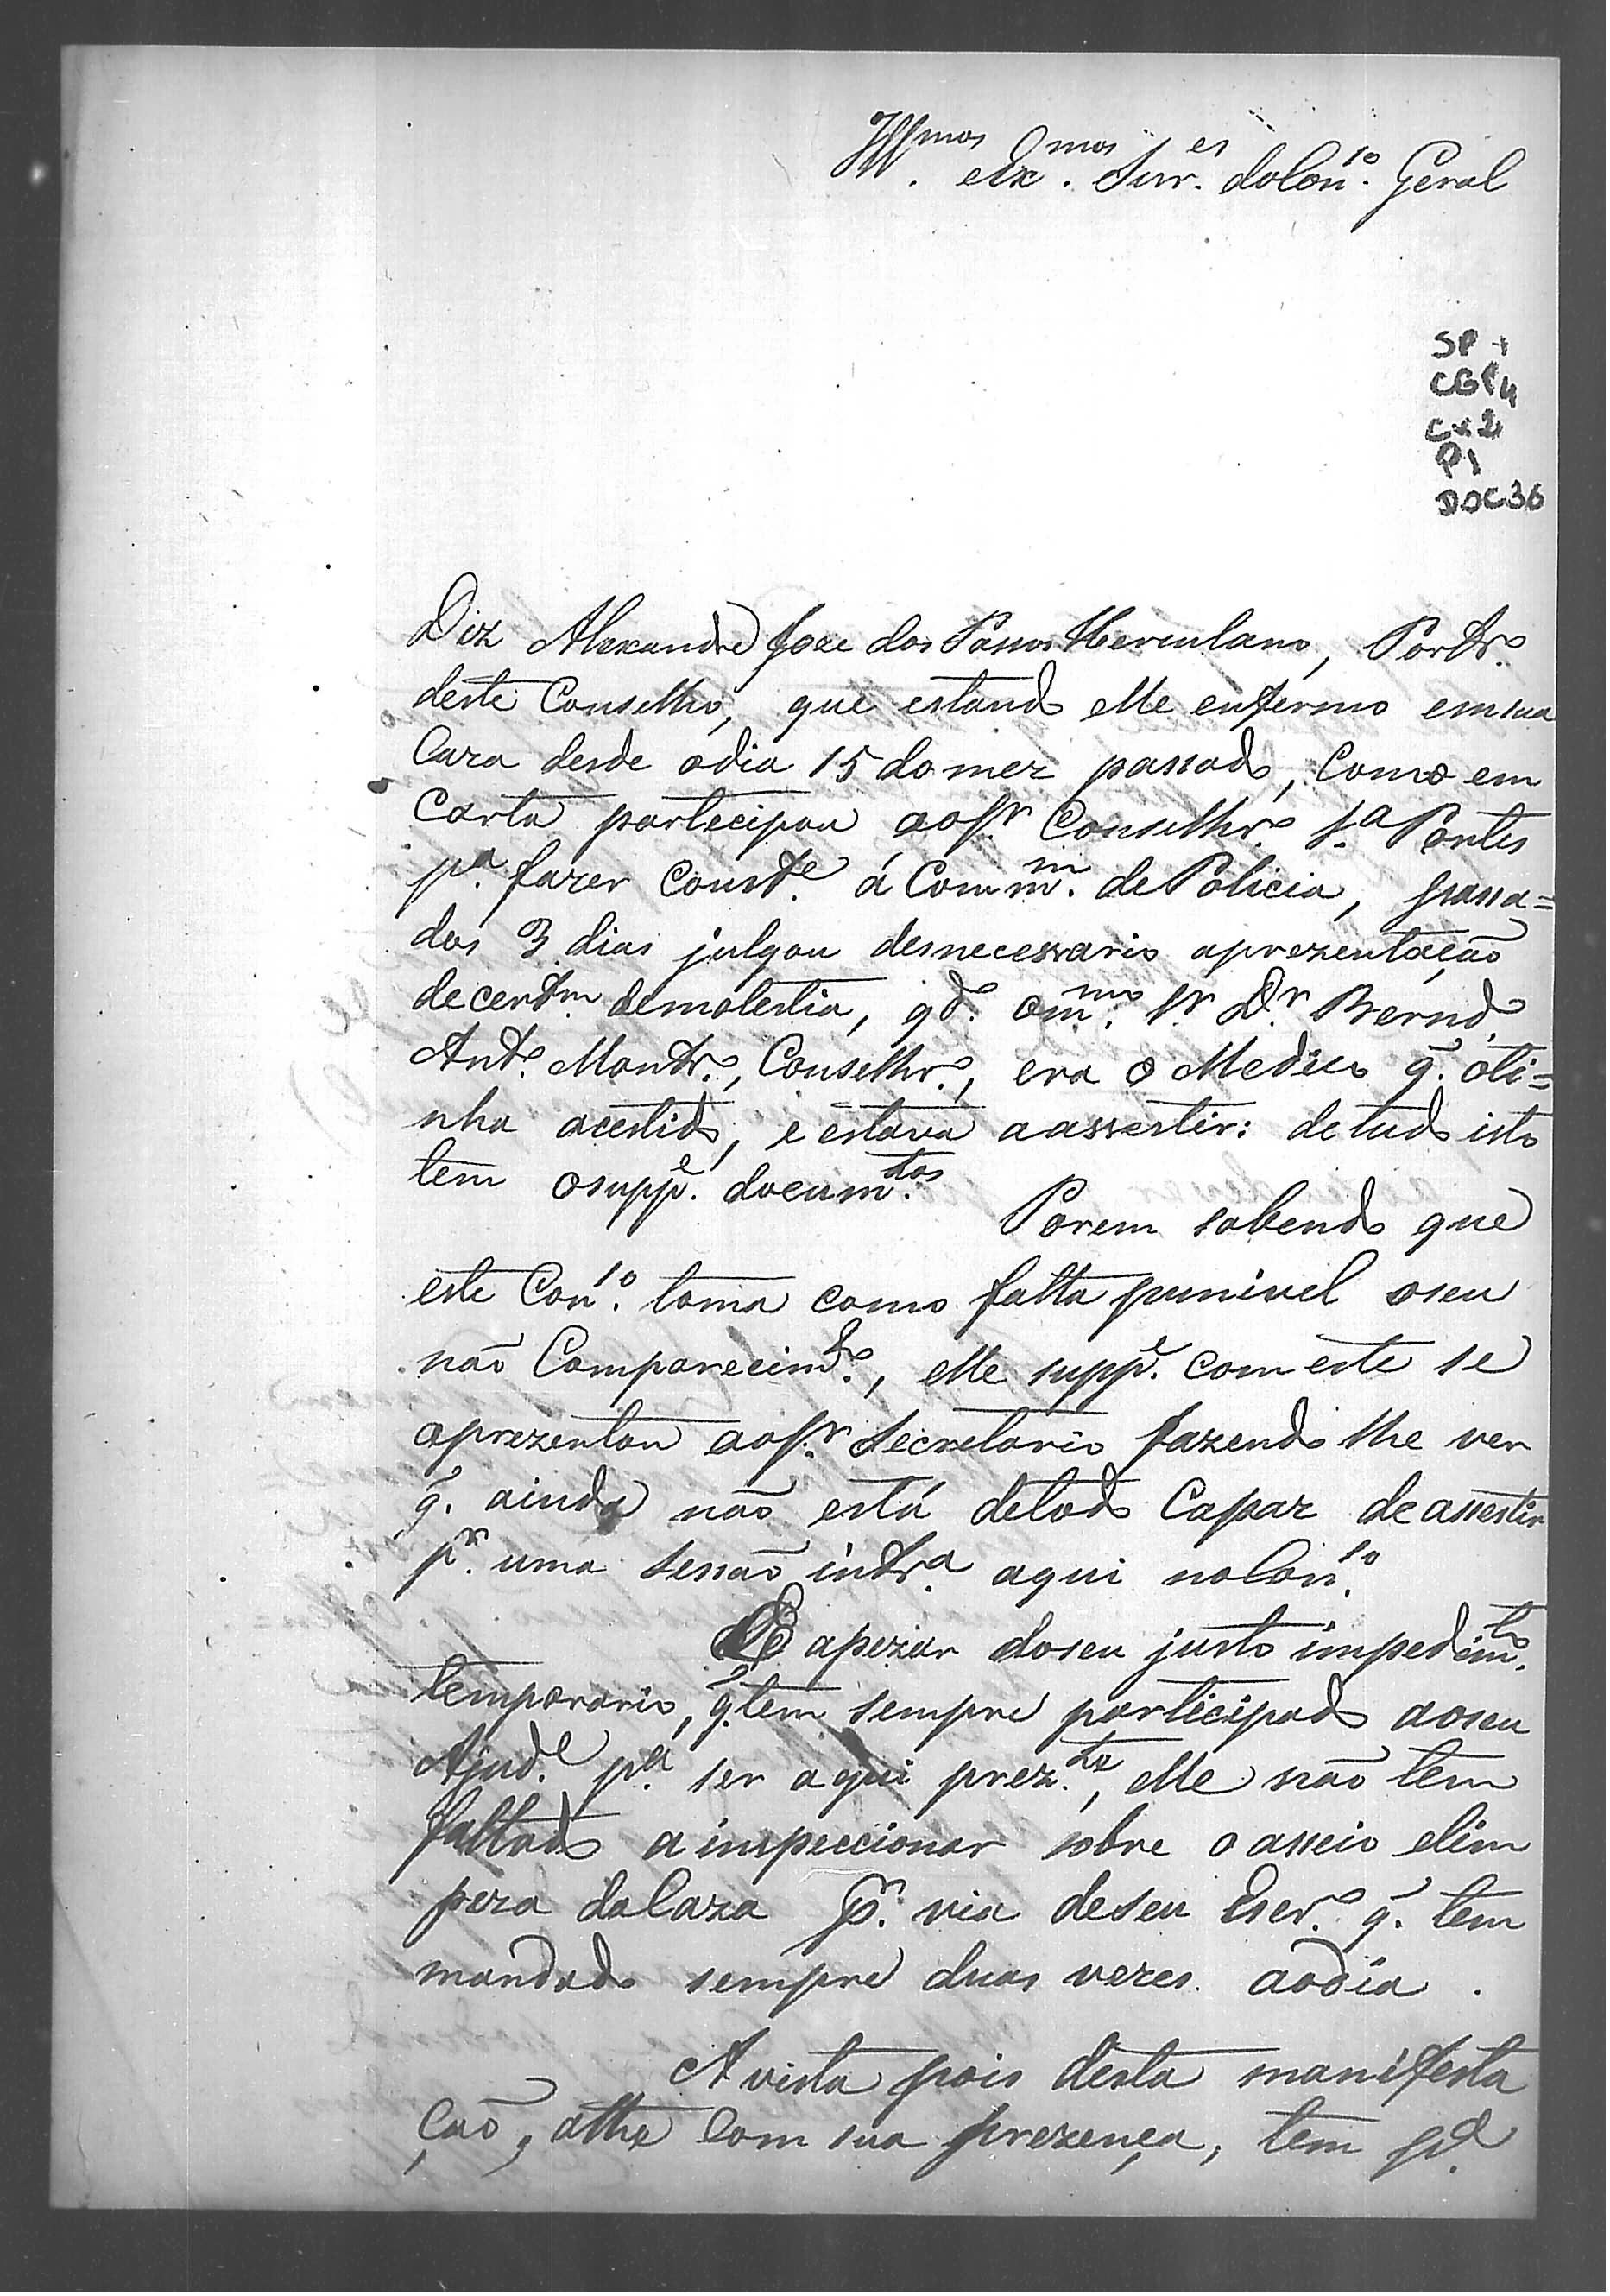 Illmos. Exmos. Snres. do Conso. Geral
SP 1
CGP4
Cx 2
P1
DOC36
Diz Alexandre Joze dos Passos Herculano, Portro.
deste Conselho, que estando elle enfermo em sua
Caza desde odia 15 domez passado, Como em
Carta partecipou aoSr. Conselhro. Sa. Pontes
pa. fazer Conste. á Commm. de Policia, passa=
dos 3 dias julgou desnecessario aprezentação
decertm. demolestia, qdo. omo. Sr. Dr. Bernd.
Anto. Montro., Conselhro., era o Medico q. oti=
nha acestido, e estava aassestir: detudo isto
tem osuppe. documtos.
Porem sabendo que
este Conso. toma como falta punivel oseu
não Comparecimto., elle suppe. com este se
aprezentou aoSr. Secretario fazendo lhe ver
q. ainda não está detodo Capaz de assestir
pr. uma Sessão intra. aqui noConso.
E apezar doseu justo impedimto.
temporario, q. tem sempre participado aoseu
Ajude. pa. ser aqui prezte., elle não tem
faltado a inspeccionar sobre o asseio elim
peza daCaza pr. via deseu Escro. q. tem
mandado sempre duas vezes aodia.
A vista pois desta manifesta
ção, athe Com sua prezença, tem pa.